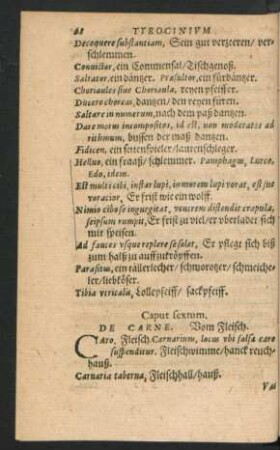 68 TYROCINIVM
Decoquere substantiam, Sein gut verzeeren/ ver-
schlemmen.
Convictor, ein Commensal/ Tischgenoß.
Saltator, ein däntzer. Præsultor, ein fürdäntzer.
Choriaules siue Choriaula, reyen pfeiffer.
Ducere choreas, dantzen/ den reyen füren.
Saltare in numerum, nach dem paß dantzen.
Dare motus incompositos, id est, non moderatos ad
rithmum, bussen der maß dantzen.
Fidicen, ein seitenspieler/ lautenschleger.
Helluo, ein fraaß/ schlemmer. Pamphagus, Lurco,
Edo, idem.
Est multi cibi, instar lupi, in morem lupi vorat, est in-
voracior, Er frist wie ein wolff.
Nimio cibo se ingurgitat, ventrem distendit crapula,
seipsum rumpit, Er frist zu viel/ er vberladet sich
mit speisen.
Ad fauces vsque replere se solet, Er pflegt sich biß
zum halß zu auffzukröpffen.
Parasitus, ein tällerlecker/ schmorotzer/ schmeiche-
ler/ liebköser.
Tibia vtricularis, Lollepfeiff/ sackpfeiff.
Caput sextum.
DE CARNE. Vom Fleisch.
CAro, Fleisch. Carnarium, locus vbi salsa caro
suspenditur. Fleischwimme/ hanck reuch-
hauß.
Carnaria taberna, Fleischhall/ hauß.